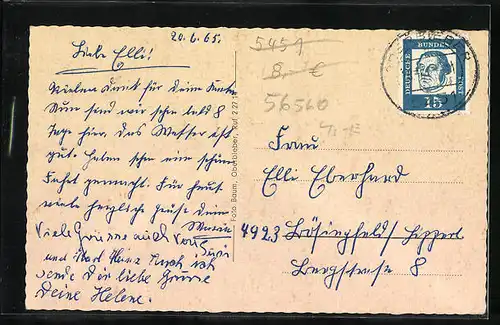 20.6.65.
Liebe Elli!
Vielen Dank für Deine Karte
Nun sind wir schon bald 8
Tage hier. Das Wetter ist
gut. Haben schon eine schöne
Fahrt gemacht. Für heut
viele herzlich Grüße Dein
Viele Grüsse auch von
und Karl Heinz Auch ich
sende Dir liebe Grüsse
Deine Helene.
Foto Baum, Oberbieber, Ruf 2 27
5451
8,- €
56560
DEUTSCHE BUNDESPOST
15
Frau
Elli Eberhard
4923 Bösingfeld/Lipperl
Bergstrasse 8